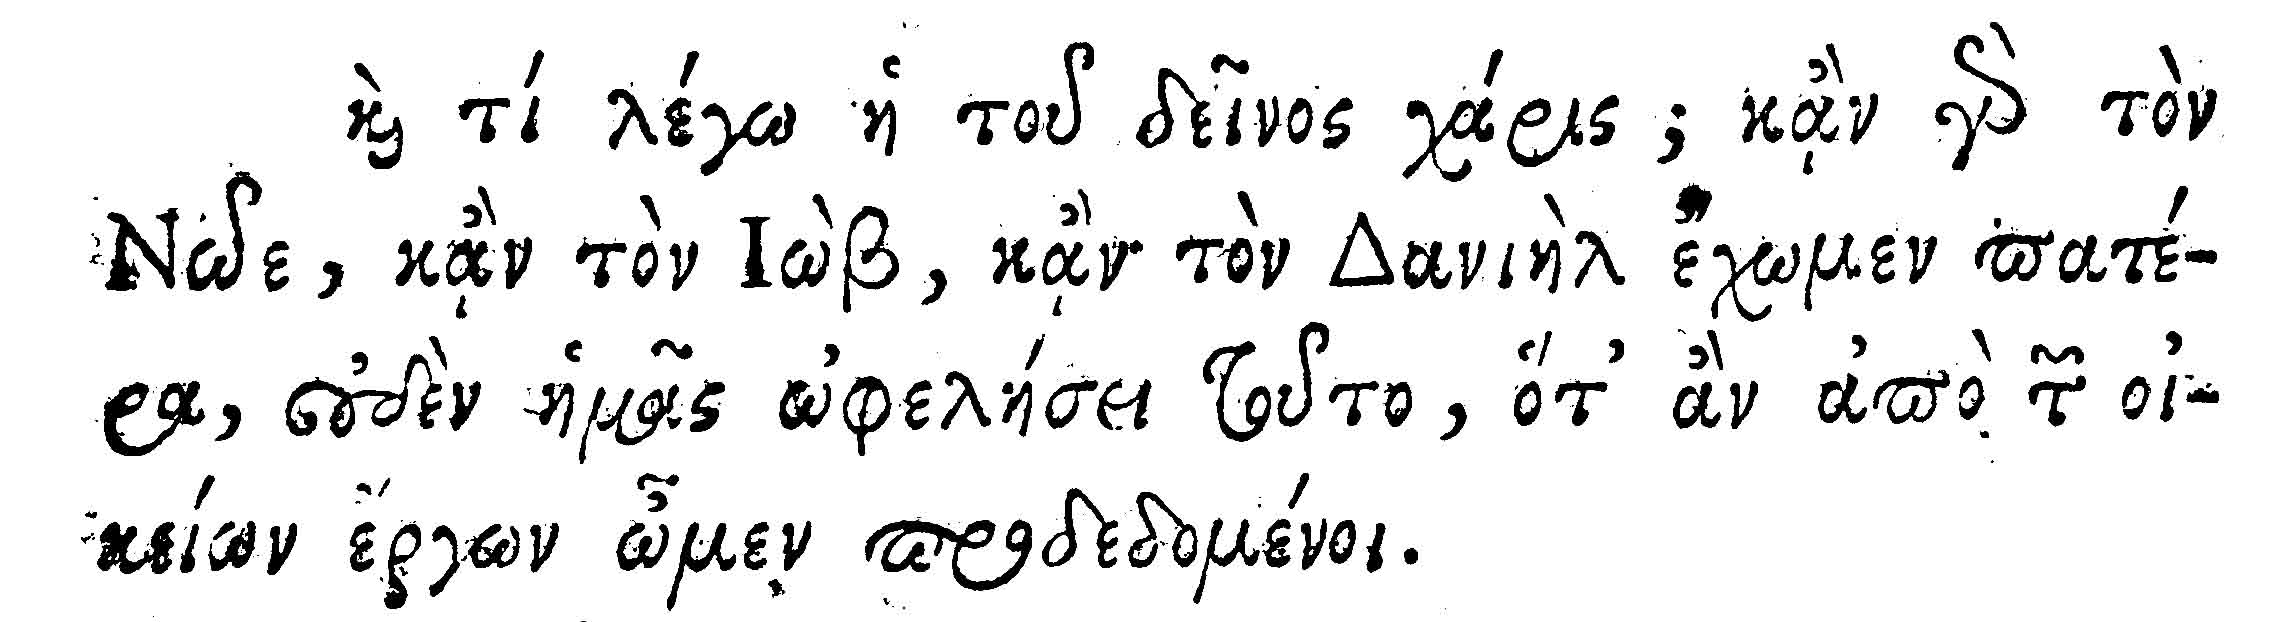 καὶ τί λέγω ἡ τοῦ δεῖνος χάρις; κᾂν γὰρ τὸν
Νῶε, κᾂν τὸν Ιὼβ, κᾂν τὸν Δανιὴλ ἔχωμεν πατέ-
ρα, οὐδὲν ἡμᾶς ὠφελήσει τοῦτο, ὅτ' ἂν ἀπὸ τῶν οἰ-
κείων ἔργων ὦμεν προδεδομένοι.